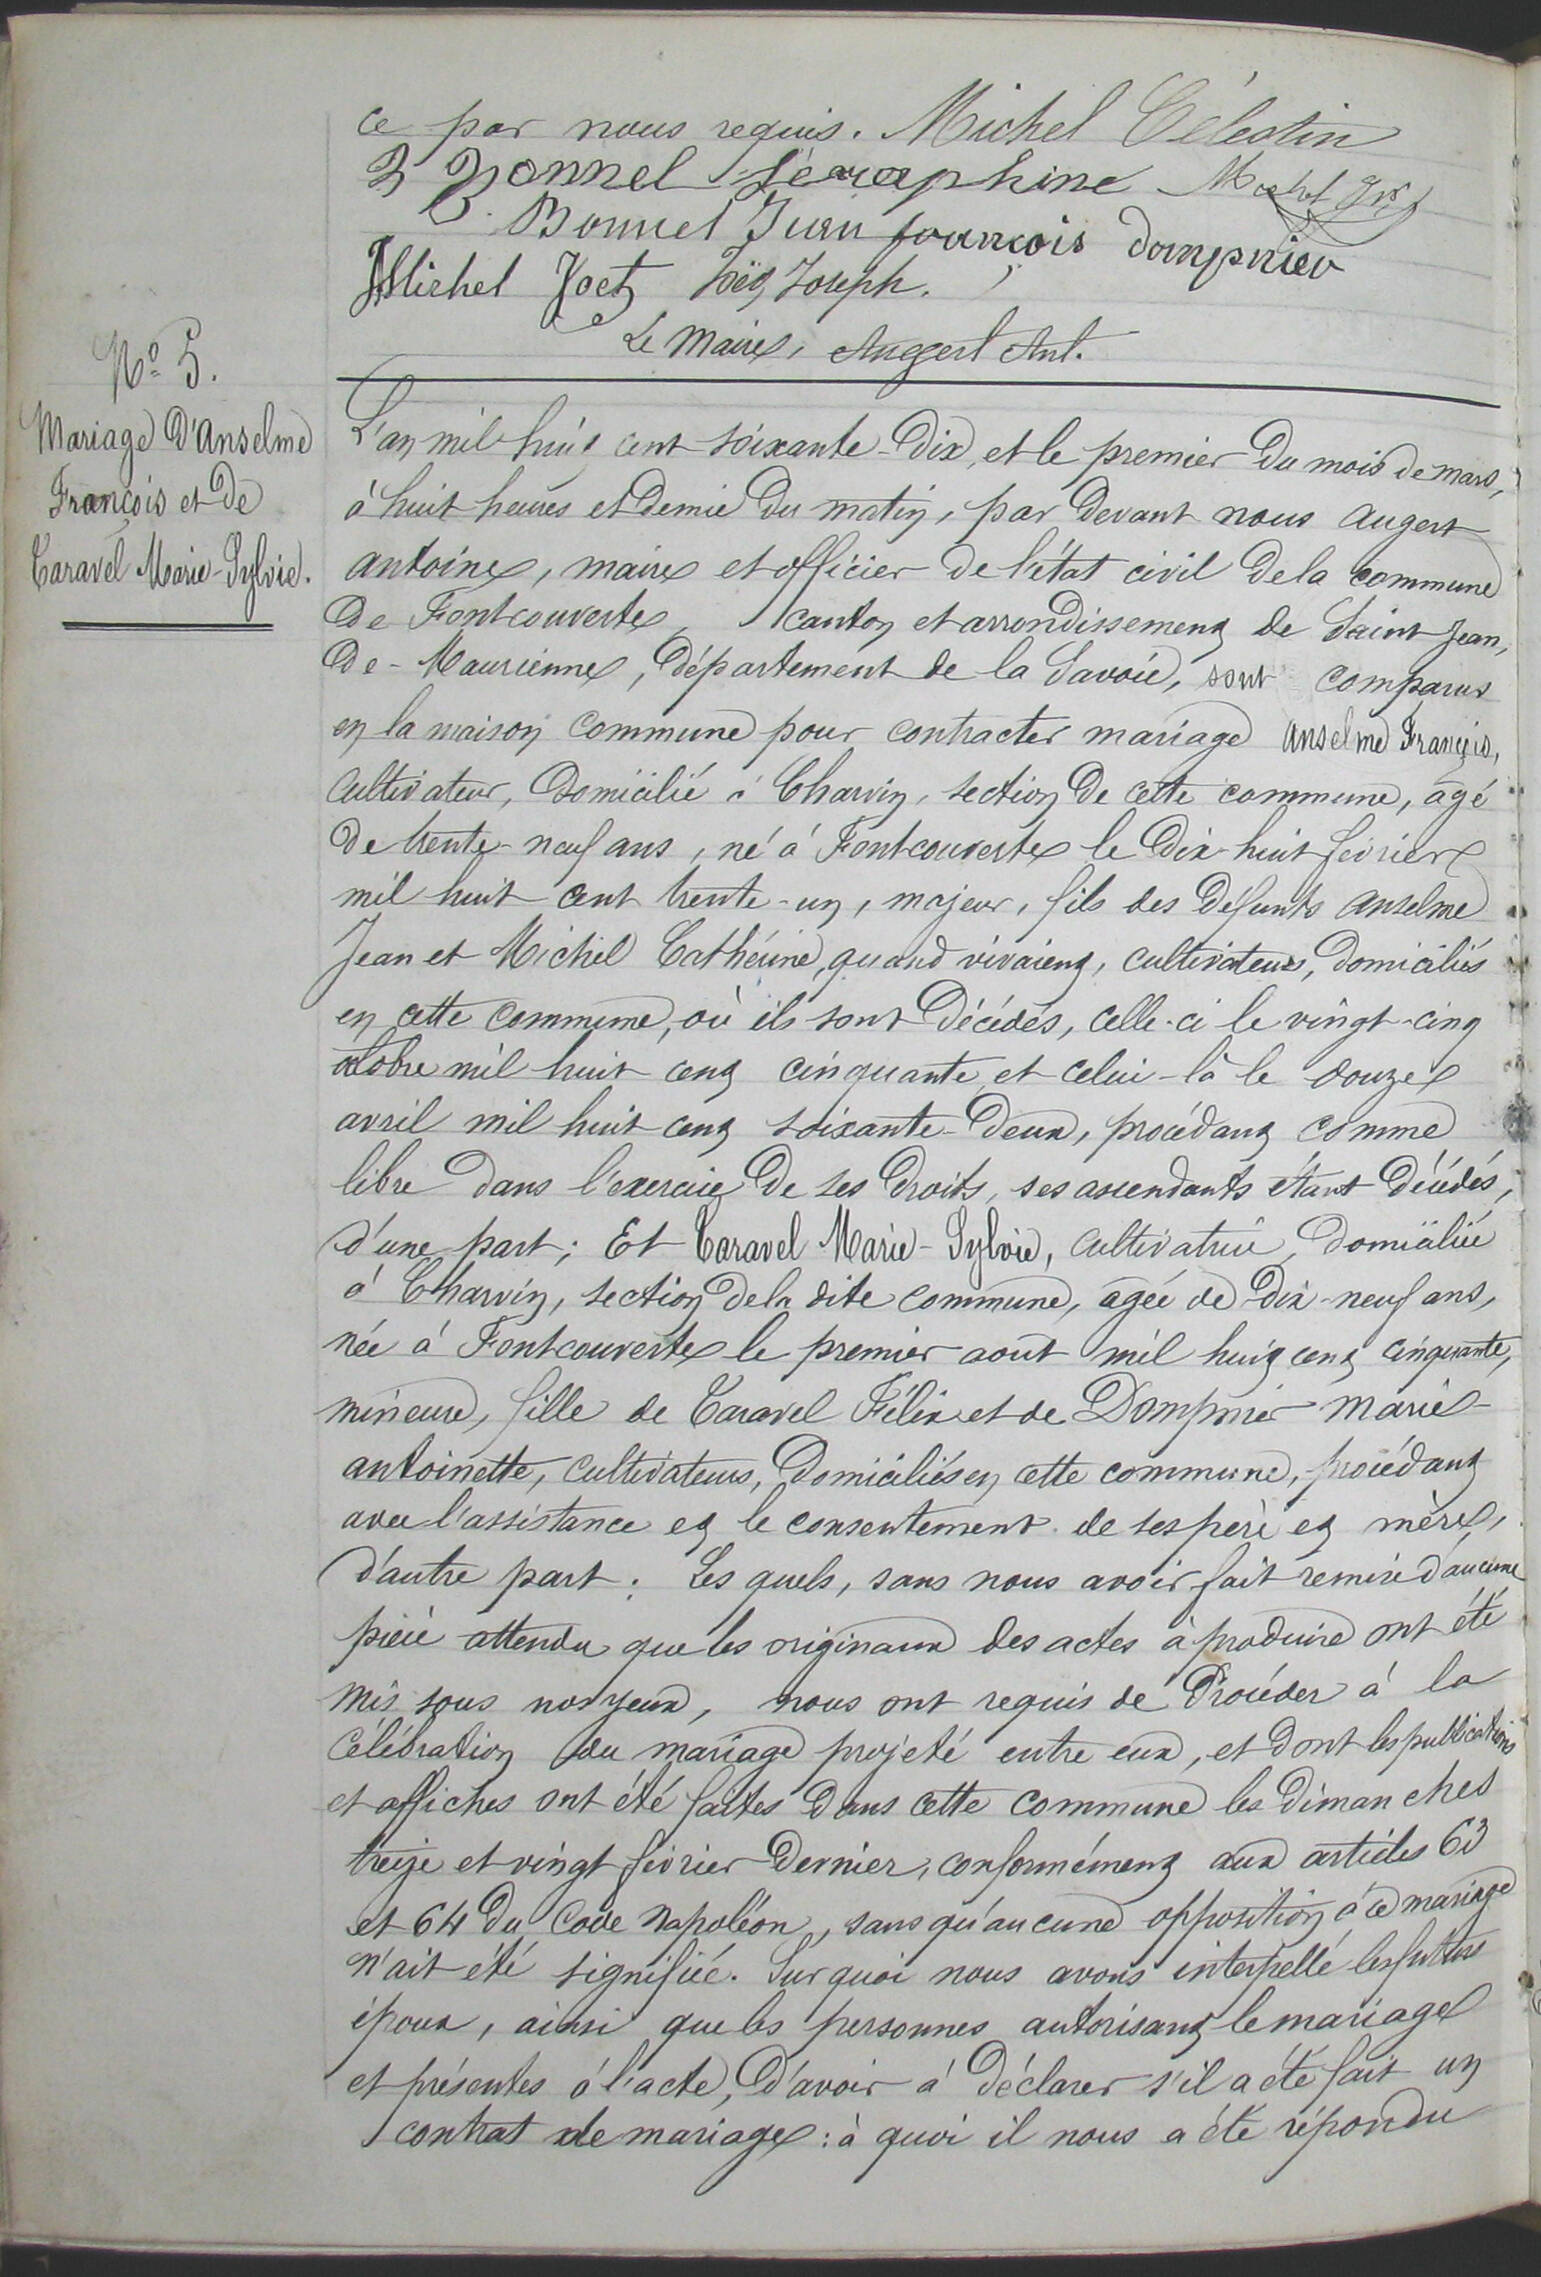 ce par nous requis. Michel Célestin
Bonnel Séraphine
Bonnel Jean françois dompnier
Michel Joet Joseph.
Le Maire, Augert Ant.
N° 5.
Mariage d'Anselme
François et de
Caravel Marie-Sylvie.
L'an mil huit cent soixante-dix, et le premier du mois de mars,
à huit heures et demie du matin, par devant nous augert
antoine, maire et officier de l'état civil de la commune
de Fontcouverte, canton et arrondissement de Saint Jean,
de-Maurienne, département de la Savoie, sont comparus
en la maison commune pour contracter mariage Anselme François,
cultivateur, domicilié à Charvin, section de cette commune, agé
de trente-neuf ans, né à Fontcouverte le dix-huit février
mil huit cent trente-un, majeur, fils des défunts anselme
Jean et Michel Cathérine, quand vivaient, cultivateurs, domiciliés
en cette commune, où ils sont décédés, celle-ci le vingt-cinq
octobre mil huit cent cinquante et celui-là le douze
avril mil huit cent soixante-deux, procédant comme
libre dans l'exercice de ses droits, ses ascendants étant décédés,
d'une part; Et Caravel Marie-Sylvie, cultivatrice, domiciliée
à Charvin, section de la dite commune, agée de dix-neuf ans,
née à Fontcouverte le premier aout mil huit cent cinquante,
mineure, fille de Caravel Félix et de Dompnier marie-
antoinette, cultivateurs, domiciliés en cette commune, procédant
avec l'assistance et le consentement de ses père et mère,
d'autre part. Les quels, sans nous avoir fait remise d'aucune
pièce attendu que les originaux des actes à produire ont été
mis sous nos yeux, nous ont requis de Procéder à la
célébration du mariage projeté entre eux, et dont les publications
et affiches ont été faites dans cette commune les dimanches
treize et vingt février dernier, conformément aux articles 63
et 64 du Code Napoléon, sans qu'aucune opposition à ce mariage
n'ait été signifiée. Sur quoi nous avons interpellé les futurs
époux, ainsi que les personnes autorisant le mariage
et présentes à l'acte, d'avoir à déclarer s'il a été fait un
contrat de mariage : à quoi il nous a été répondu